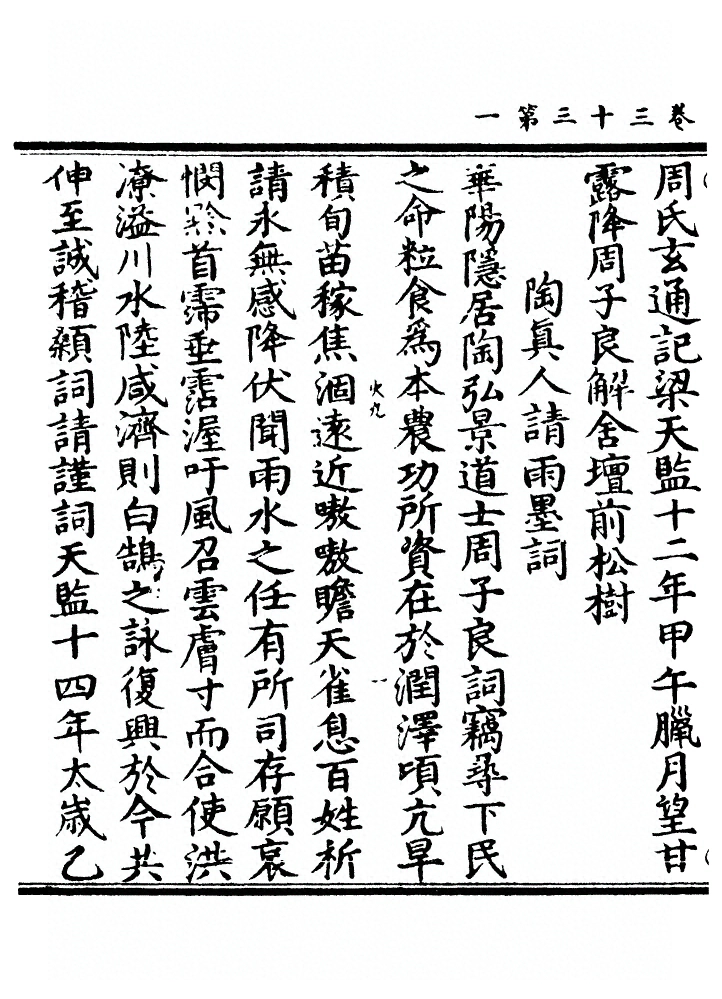 卷三十三第一
周氏玄通記梁天監十二年甲午臘月望甘
露降周子良解舍壇前松樹
陶真人請雨墨詞
華陽隱居陶弘景道士周子良詞竊尋下民
之命粒食爲本農功所資在於潤澤頃亢旱
火九
積旬苗稼焦涸遠近嗷嗷瞻天雀息百姓析
請永無感降伏聞雨水之任有所司存願哀
憫黔首霈垂霑渥吁風召雲膚寸而合使洪
潦溢川水陸咸濟則白鵠之詠復興於今共
伸至誠稽顙詞請謹詞天監十四年太歲乙